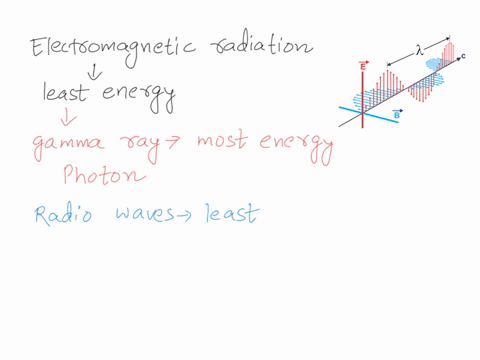 Electromagnetic radiation
↓
least energy
↓
gamma ray → most energy
Photon
Radio waves → least
E
λ
c
B